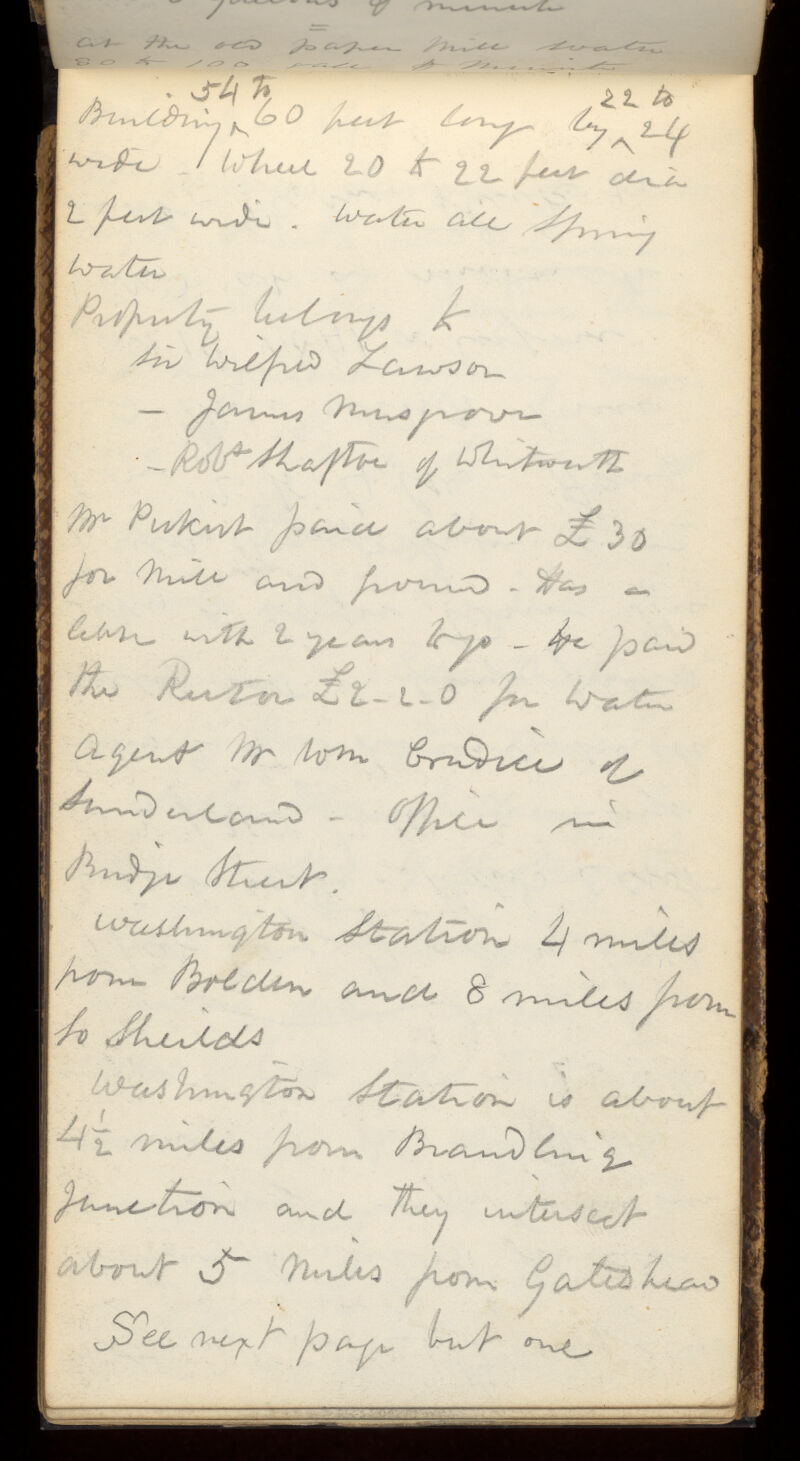 gallons of minute
at the old paper Mill water
80 to 100 galls p Minute
54 to 22 to
Building 60 feet long by 24
wide - Wheel 20 to 22 feet dia
2 feet wide. Water all Spring
water
Property belongs to
Sir Wilfred Lawson
- James Musgrove
- Robt Shaftoe of Whitworth
Mr paid about £30
for Mill and ground - Has a
lease with 2 years to go - He paid
the Rector £2-2-0 for Water
Agent Mr Wm of
Sunderland - Office in
Bridge Street.
Washington Station 4 miles
from Bolden and 8 miles from
So Sheilds
Washington Station is about
4½ miles from Brandling
Junction and they intersect
about 5 Miles from Gateshead
See next page but one